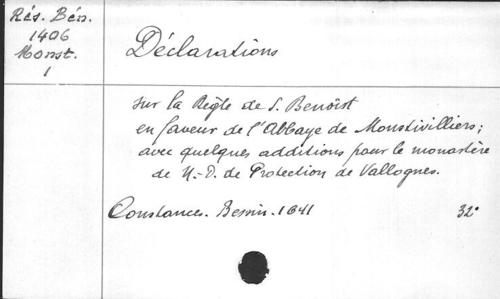 Rés. Bén.
1406
Monst.
1
Déclarations
sur la Règle de S. Benoist
en faveur de l'Abbaye de Monstivilliers;
avec quelques additions pour le monastère
de N.-D. de Protection de Vallognes.
Constances. Bessin. 1641
32°